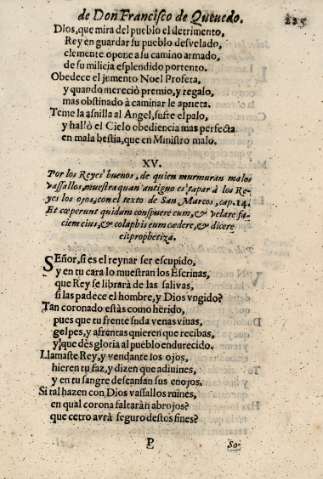 de Don Francisco de Queuedo. 225
Dios, que mira del pueblo el detrimento,
Rey en guardar su pueblo desvelado,
clemente opone a su camino armado,
de su milicia esplendido portento.
Obedece el jumento No el Profeta,
y quando mereciò premio, y regalo,
mas obstinado à caminar le aprieta.
Teme la asnilla al Angel, sufre el palo,
y hallò el Cielo obediencia mas perfecta
en mala bestia, que en Ministro malo.
XV.
Por los Reyes buenos, de quien murmuran malos
vassallos, muestra quan antiguo es tapar à los Re-
yes los ojos, con el texto de San Marcos, cap. 14.
Et cœperunt quidam conspuere eum, & velare fa-
ciem eius, & colaphis eum cedere, & dicere
ei: prophetiza.
SEñor, si es el reynar ser escupido,
y en tu cara lo muestran los Escrinas,
que Rey se librarà de las salivas,
si las padece el hombre, y Dios vngido?
Tan coronado estàs como herido,
pues que tu frente suda venas viuas,
golpes, y afrentas quieren que recibas,
y que dès gloria al pueblo endurecido.
Llamaste Rey, y vendante los ojos,
hieren tu faz, y dizen que adiuines,
y en tu sangre descansan sus enojos.
Si tal hazen con Dios vassallos ruines,
en qual corona faltaràn abrojos?
que cetro avrà seguro destos fines?
P
So-